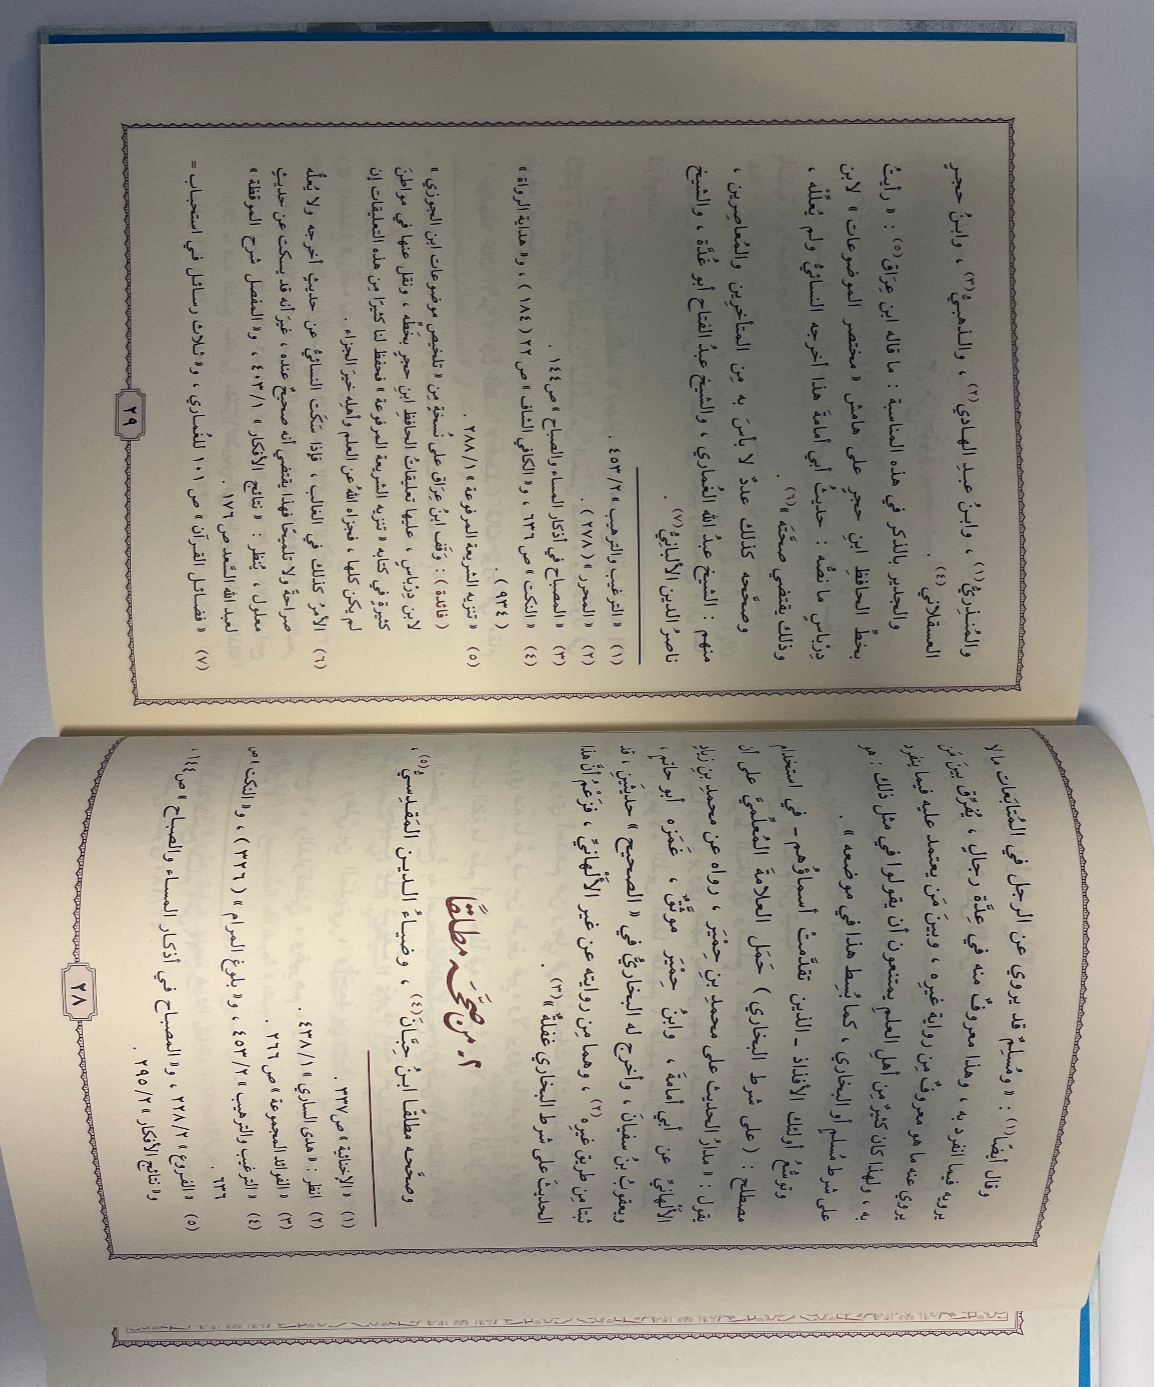 وقال أيضًا(١) : « ومُسلِمٌ قد يروي عن الرجل في المُتابَعات ما لا
يرويه فيما انفرد به ، وهذا معروفٌ منه في عِدَّة رجالٍ ، يُفرَّق بينَ مَن
يروي عنه ما هو معروفٌ مِن رواية غيرِه ، وبينَ مَن يعتمد عليه فيما ينفرد
به ، ولهذا كان كثيرٌ مِن أهلِ العلمِ يمتنعون أن يقولوا في مثلِ ذلك : هو
على شرط مُسلمٍ أو البخاري ، كما بُسِط هذا في موضعه » .
وتوسُّعُ أولئك الأفذاذ ـ الذين تقدَّمتْ أسماؤُهم ـ في استخدام
مصطلح : ( على شرط البخاري ) حَمَل العلامةَ المُعلِّميَّ على أن
يقول : « مدارُ الحديث على محمدِ بنِ حِمْيَر ، رواه عن محمدِ بنِ زيادٍ
الأَلْهانيِّ عن أبي أمامةَ ، وابنُ حِمْيَر موثَّقٌ ، غَمَزه أبو حاتمٍ ،
ويعقوبُ بنُ سفيانَ ، وأخرج له البخاريُّ في « الصحيح » حديثينِ ، قد
ثبتا مِن طريق غيرِه(٢) ، وهما مِن روايته عن غير الأَلْهانيِّ ، فزَعْمُ أنَّ هذا
الحديثَ على شرط البخاري غفلةٌ »(٣) .
٢ـ من صحَّحَه مطلقًا
وصحَّحه مطلقًا ابنُ حِبَّانَ(٤) ، وضياءُ الـديـن المَقـدِسيُّ(٥) ،
(١) « الإخنائية » ص٣٣٧ .
(٢) انظر : « هدي الساري » ٤٣٨/١ .
(٣) « الفوائد المجموعة » ص ٢٦٦ .
(٤) « الترغيب والترهيب » ٤٥٣/٢ ، و« بلوغ المرام » ( ٣٢٦ ) ، و« النكت » ص
٦٣٦ .
(٥) « الفروع » ٢٢٨/٢ ، و« المصباح في أذكار المساء والصباح » ص ١٤٤ ،
و« نتائج الأفكار » ٢٩٥/٢ .
٢٨
والمُنذريُّ(١) ، وابنُ عبدِ الهادي(٢) ، والـذهبيُّ(٣) ، وابـنُ حجـرٍ
العسقلاني(٤) .
والجدير بالذكر في هذه المناسبة : ما قاله ابن عِرَاق(٥) : « رأيتُ
بخطِّ الحافظِ ابنِ حجرٍ على هامش « مختصر الموضوعات » لابن
دِرْباسٍ ما نصُّه : حديثُ أبي أمامةَ هذا أخرجه النسائيُّ ولم يُعلِّله ،
وذلك يقتضي صحَّتَه »(٦) .
وصحَّحه كذلك عددٌ لا بأسَ به مِن المتأخرين والمُعاصرين ،
منهم : الشيخ عبدُ الله الغُماري ، والشيخ عبدُ الفتاح أبو غُدَّة ، والشيخ
ناصرُ الدين الألبانيُّ(٧) .
(١) « الترغيب والترهيب » ٤٥٣/٢ .
(٢) « المحرر » ( ٢٧٨ ) .
(٣) « المصباح في أذكار المساء والصباح » ص١٤٤ .
(٤) « النكت » ص ٦٣٦ ، و« الكافي الشاف » ص ٢٢ ( ١٨٤ ) ، و« هداية الرواة »
( ٩٣٤ ) .
(٥) « تنزيه الشريعة المرفوعة » ٢٨٨/١ .
( فائدة ) : وَقَف ابنُ عِرَاق على نُسخةٍ مِن « تلخيص موضوعات ابن الجوزي »
لابن دِرْباس ، عليها تعليقاتُ الحافظِ ابنِ حجرٍ بخَطِّه ، ونقل عنها في مواطنَ
كثيرةٍ في كتابه « تنزيه الشريعة المرفوعة » فحفظ لنا كثيرًا مِن هذه التعليقات إن
لم يكن كلها ، فجزاه اللهُ عن العلم وأهلِه خيرَ الجزاء .
(٦) الأمرُ كذلك في الغالب ، فإذا سَكَت النسائيُّ عن حديثٍ أخرجه ولا يُعلُّه
صراحةً ولا تلميحًا فهذا يقتضي أنه صحيحٌ عنده ، غيرَ أنه قد يسكت عن حديثٍ
معلول ، يُنظر : « نتائج الأفكار » ٤٠٣/١ ، و« المفصل شرح الموقظة »
لعبد الله السَّعد ص ١٧٦ .
(٧) « فضـائـل القـرآن » ص ١٠١ للغُمـاري ، و« ثـلاث رسـائـل فـي استحبـاب =
٢٩